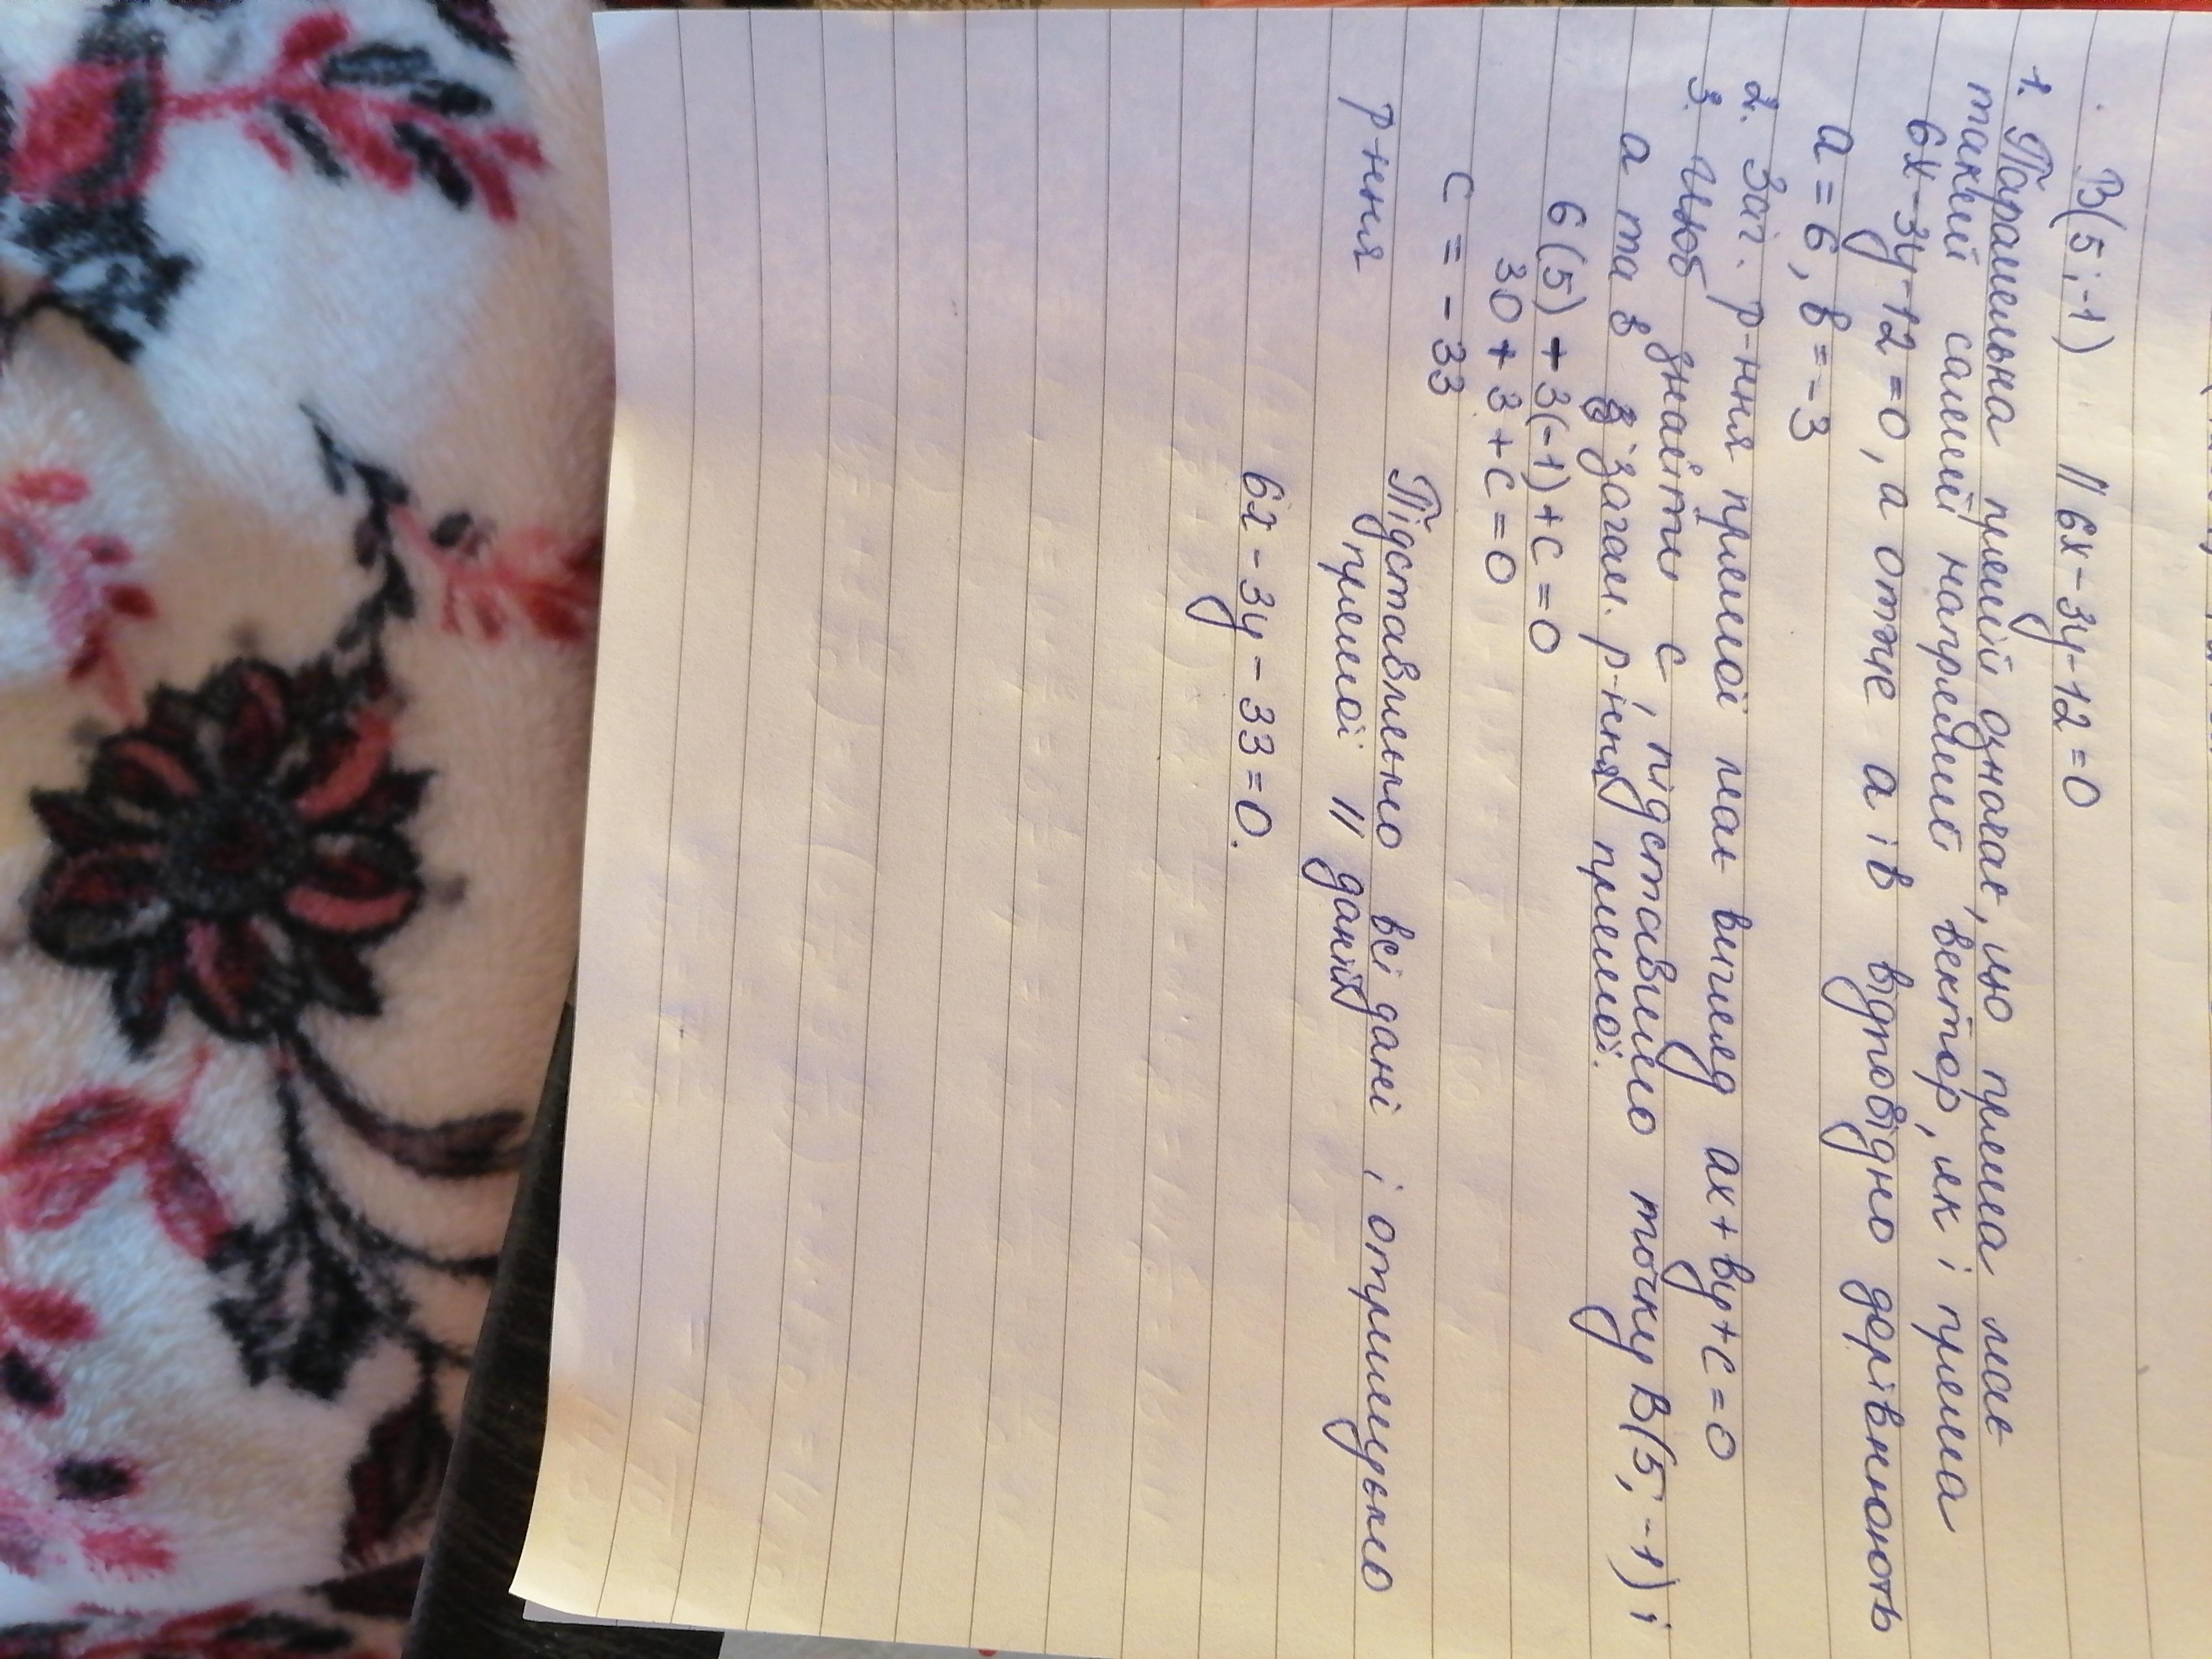 В(5;-1) || 6х-3у-12=0
1. Паралельна прямій означає, що пряма має
такий самий напрямний вектор, як і пряма
6х-3у-12=0, а отже а і в відповідно дорівнюють
а=6, в=-3
2. Заг. р-ння прямої має вигляд ах+ву+с=0
3. Щоб знайти с, підставимо точку В(5;-1) і
а та в в загал. р-ння прямої.
6(5) + 3(-1)+с=0
30+3+с=0
с = -33
Підставляємо всі дані і отримуємо
р-ння прямої || даній
6х-3у-33=0.